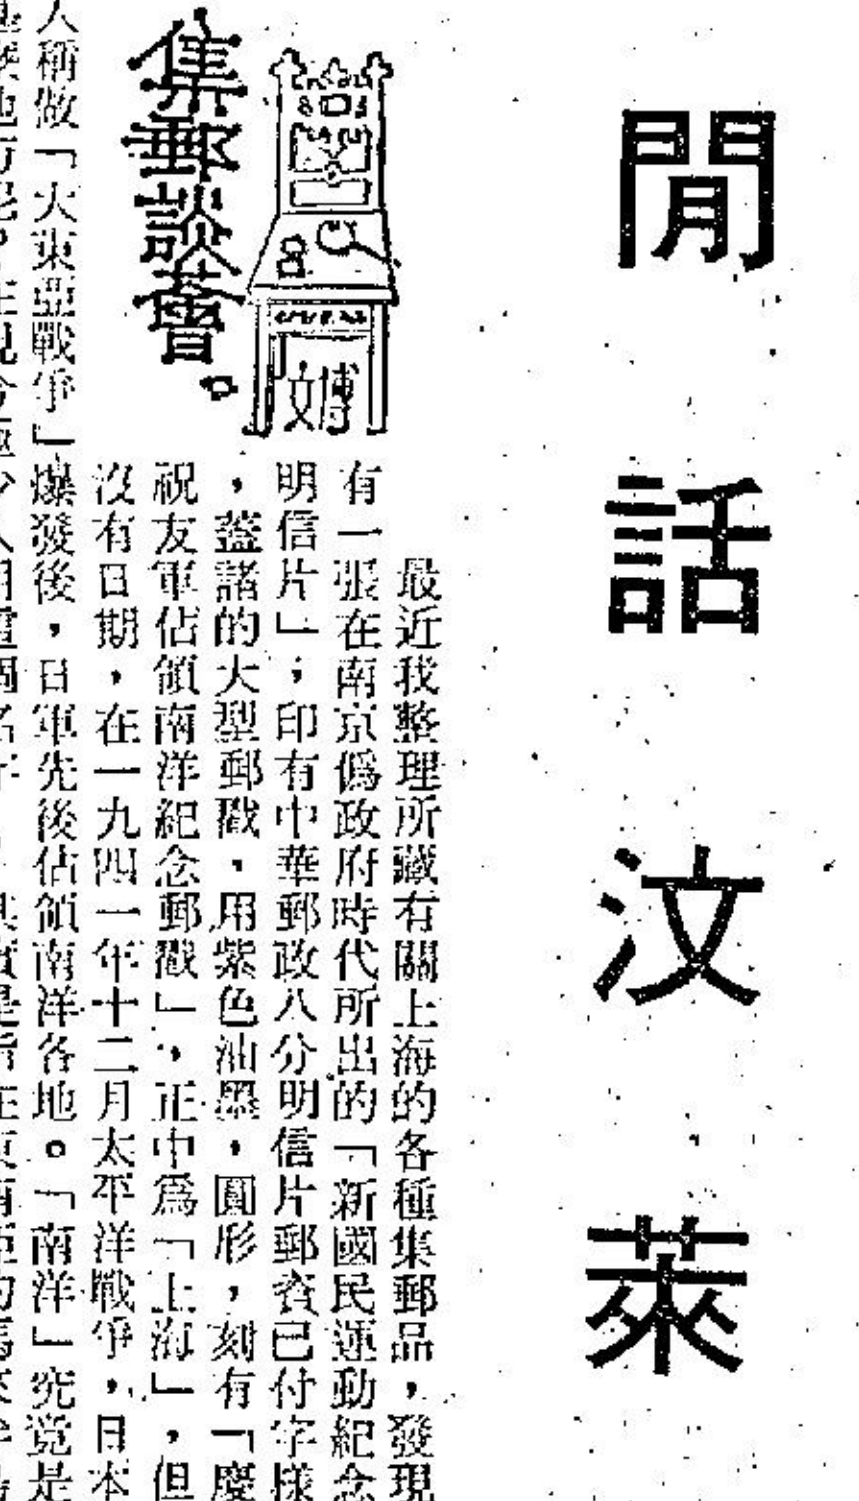 閒話汶萊
集郵談薈
博文
最近我整理所藏有關上海的各種集郵品，發現
有一張在南京僞政府時代所出的「新國民運動紀念
明信片」，印有中華郵政八分明信片郵資已付字樣
，蓋諸的大型郵戳，用紫色油墨，圓形，刻有「慶
祝友軍佔領南洋紀念郵戳」，正中爲「上海」，但
沒有日期，在一九四一年十二月太平洋戰爭，日本
人稱做「大東亞戰爭」爆發後，日軍先後佔領南洋各地。「南洋」究竟是